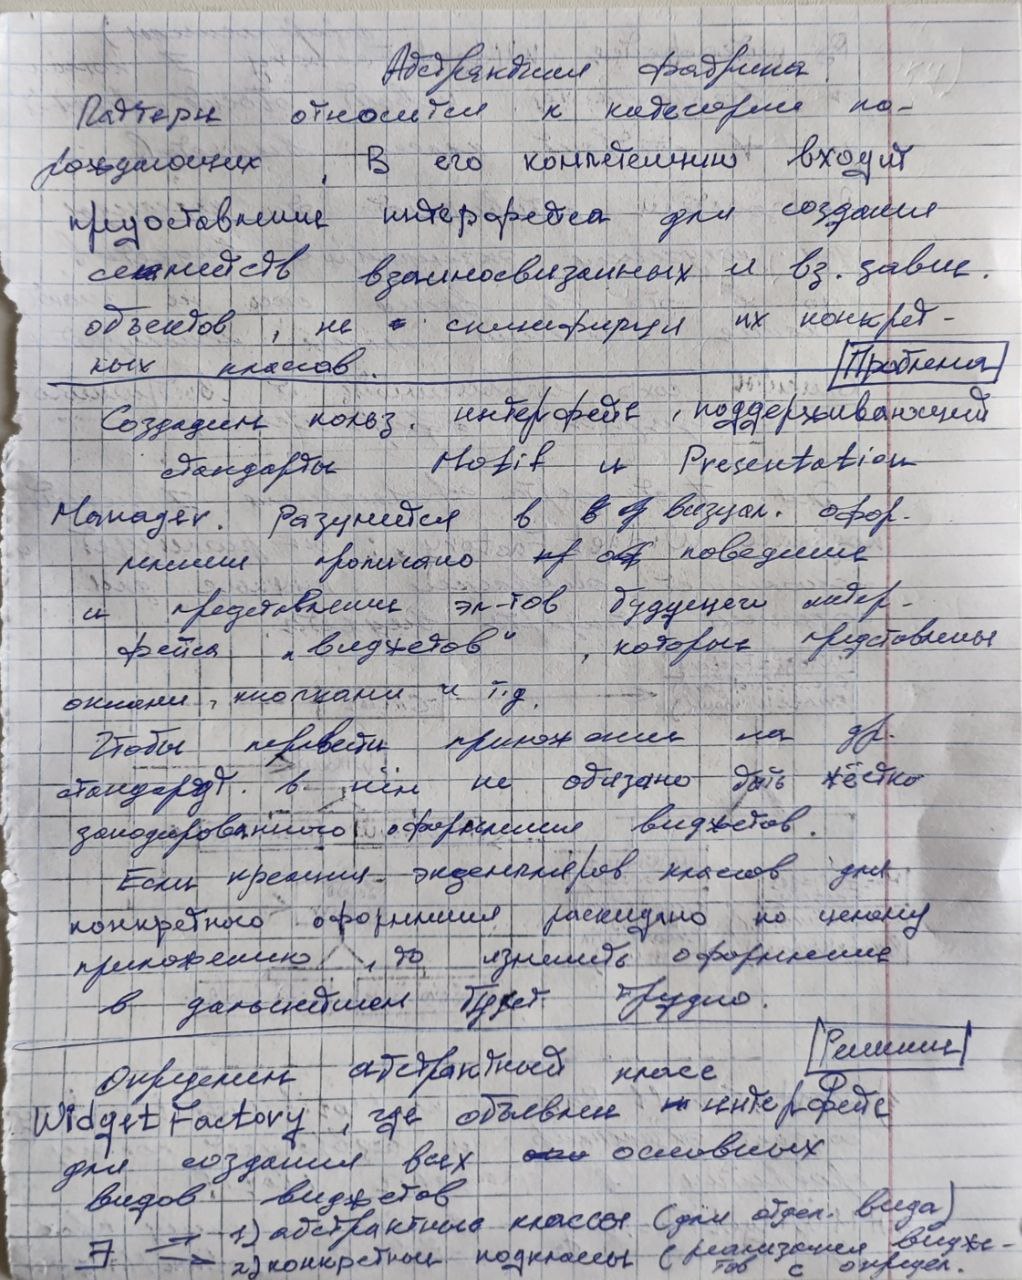 Абстрактная фабрика
Паттерн относится к категории по-
рождающих. В его компетенцию входит
предоставление интерфейса для создания
семейств взаимосвязанных и вз. завис.
объектов, не специфицируя их конкрет-
ных классов.
Проблема
Создадим польз. интерфейс, поддерживающий
стандарты Motif и Presentation
Manager. Разумеется в визуал. офор-
млении прописано поведение
и представление эл-тов будущего интер-
фейса „виджетов", которые представлены
окнами, кнопками и т.д.
Чтобы перевести приложение на др.
стандарт. в нём не обязано быть жёстко
закодированного оформления виджетов.
Если экземпляров классов для
конкретного оформления раскидано по целому
приложению, то изменить оформление
в дальнейшем будет трудно.
Решение
Определим абстрактный класс
WidgetFactory, где объявлен интерфейс
для создания всех основных
видов виджетов
∃ 1) абстрактные классы (для отдел. вида)
2) конкретные подклассы (реализация видже-
тов с определ.